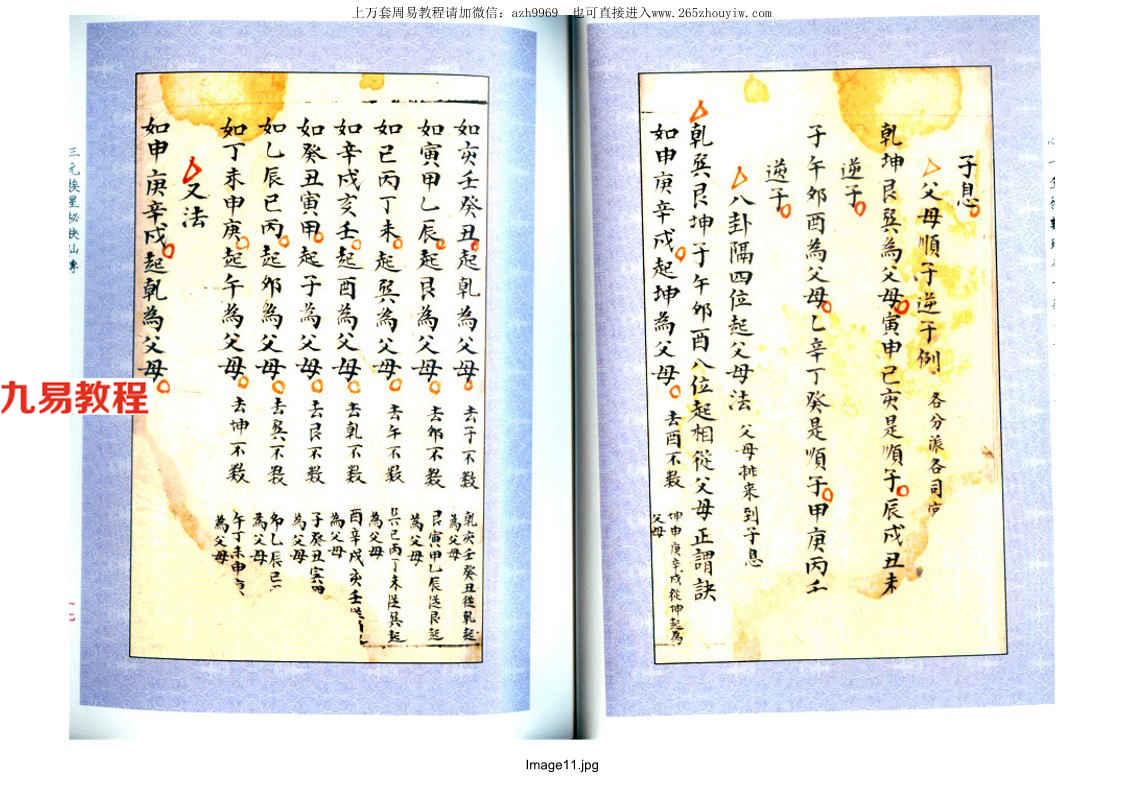 上万套周易教程请加微信：azh9969 也可直接进入www.265zhouyiw.com
子息
父母順子逆子例 各分派各司
乾坤艮巽為父母寅申巳亥是順子辰戌丑未
逆子
子午卯酉為父母乙辛丁癸是順子甲庚丙壬
逆子
八卦隔四位起父母法 父母排來到子息
乾巽艮坤子午卯酉八位起相從父母正謂訣
如申庚辛戌起坤為父母 去酉不數 坤申庚辛戌從坤起為父母
如亥壬癸丑起乾為父母 去子不數 乾亥壬癸丑從乾起為父母
如寅甲乙辰起艮為父母 去卯不數 艮寅甲乙辰從艮起為父母
如巳丙丁未起巽為父母 去午不數 巽巳丙丁未從巽起為父母
如辛戌亥壬起酉為父母 去乾不數 酉辛戌亥壬為父母
如癸丑寅甲起子為父母 去艮不數 子癸丑寅為父母
如乙辰巳丙起卯為父母 去巽不數 卯乙辰巳為父母
如丁未申庚起午為父母 去坤不數 午丁未申為父母
又法
如申庚辛戌起乾為父母
三元挨星秘訣仙傳
九易教程
Image11.jpg